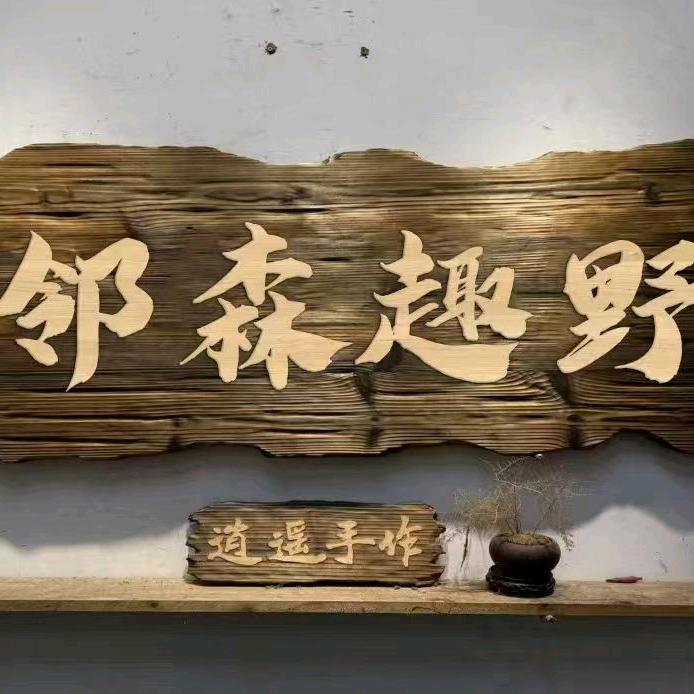 邻森趣野
逍遥手作